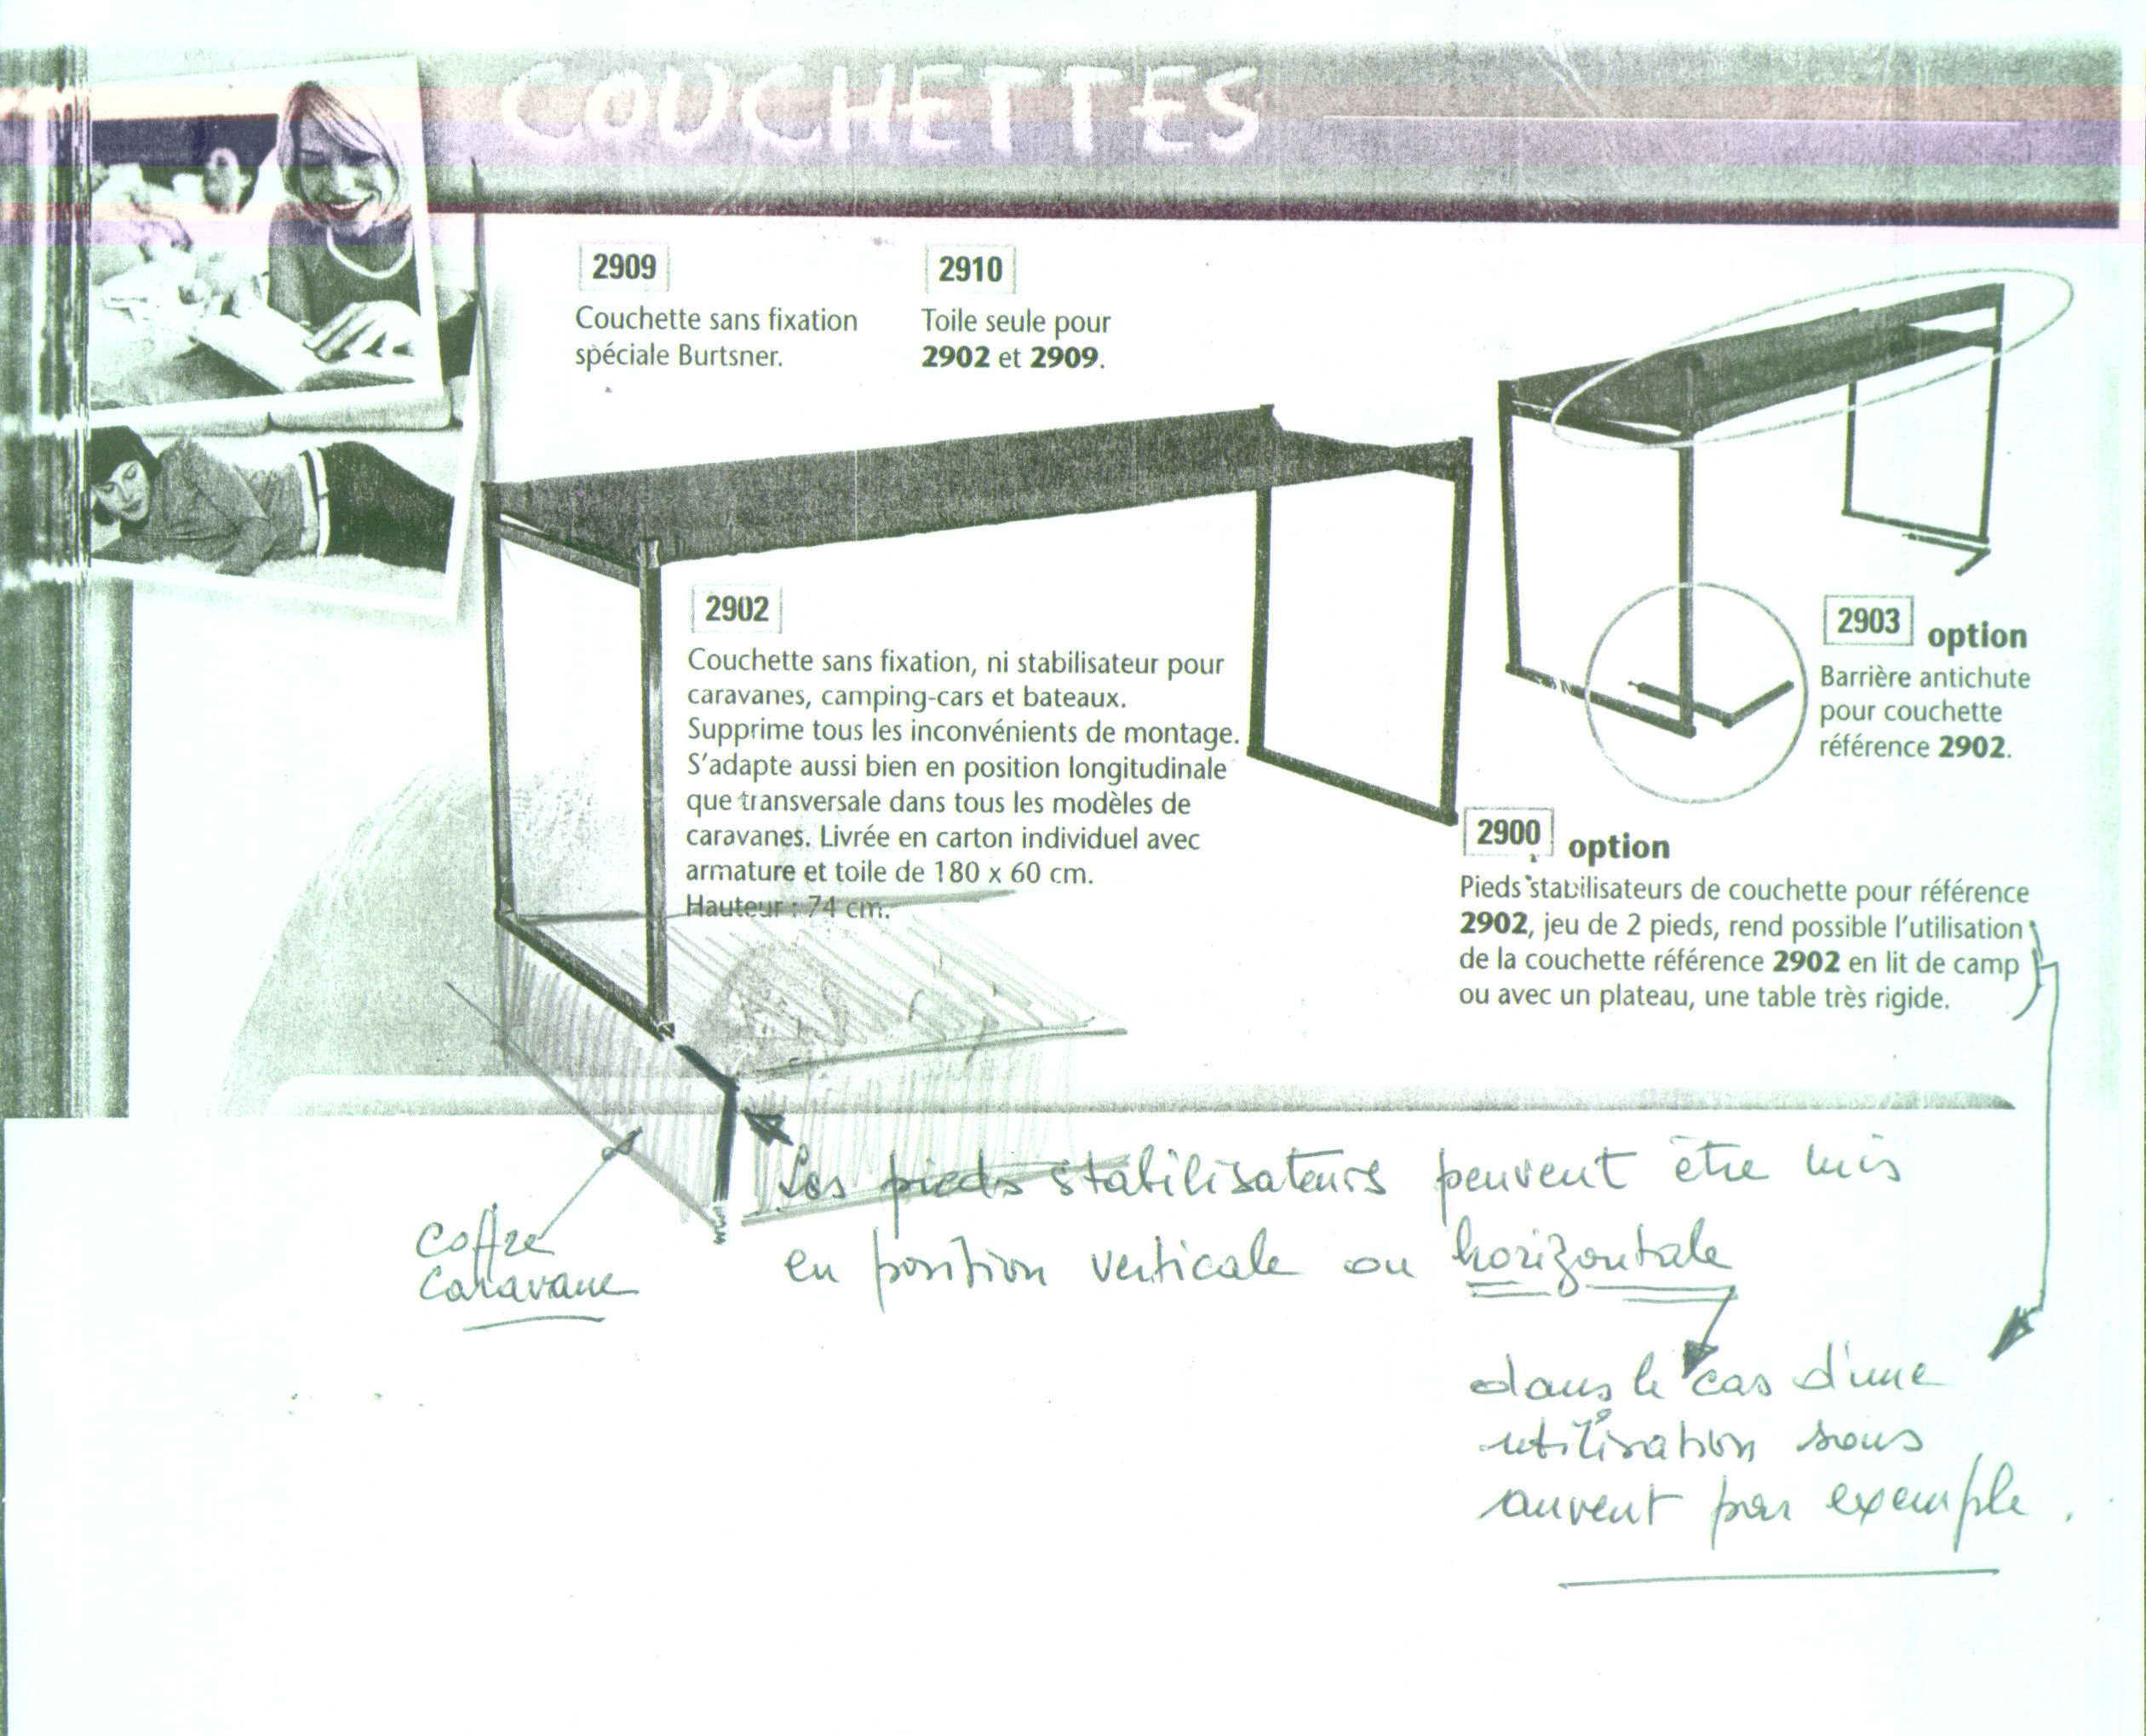 COUCHETTES
2909
Couchette sans fixation
spéciale Burtsner.
2910
Toile seule pour
2902 et 2909.
2902
Couchette sans fixation, ni stabilisateur pour
caravanes, camping-cars et bateaux.
Supprime tous les inconvénients de montage.
S'adapte aussi bien en position longitudinale
que transversale dans tous les modèles de
caravanes. Livrée en carton individuel avec
armature et toile de 180 x 60 cm.
Hauteur : 74 cm.
2903 option
Barrière antichute
pour couchette
référence 2902.
2900 option
Pieds stabilisateurs de couchette pour référence
2902, jeu de 2 pieds, rend possible l'utilisation
de la couchette référence 2902 en lit de camp
ou avec un plateau, une table très rigide.
Les pieds stabilisateurs peuvent être mis
en position verticale ou horizontale
coffre
caravane
dans le cas d'une
utilisation sous
auvent par exemple.